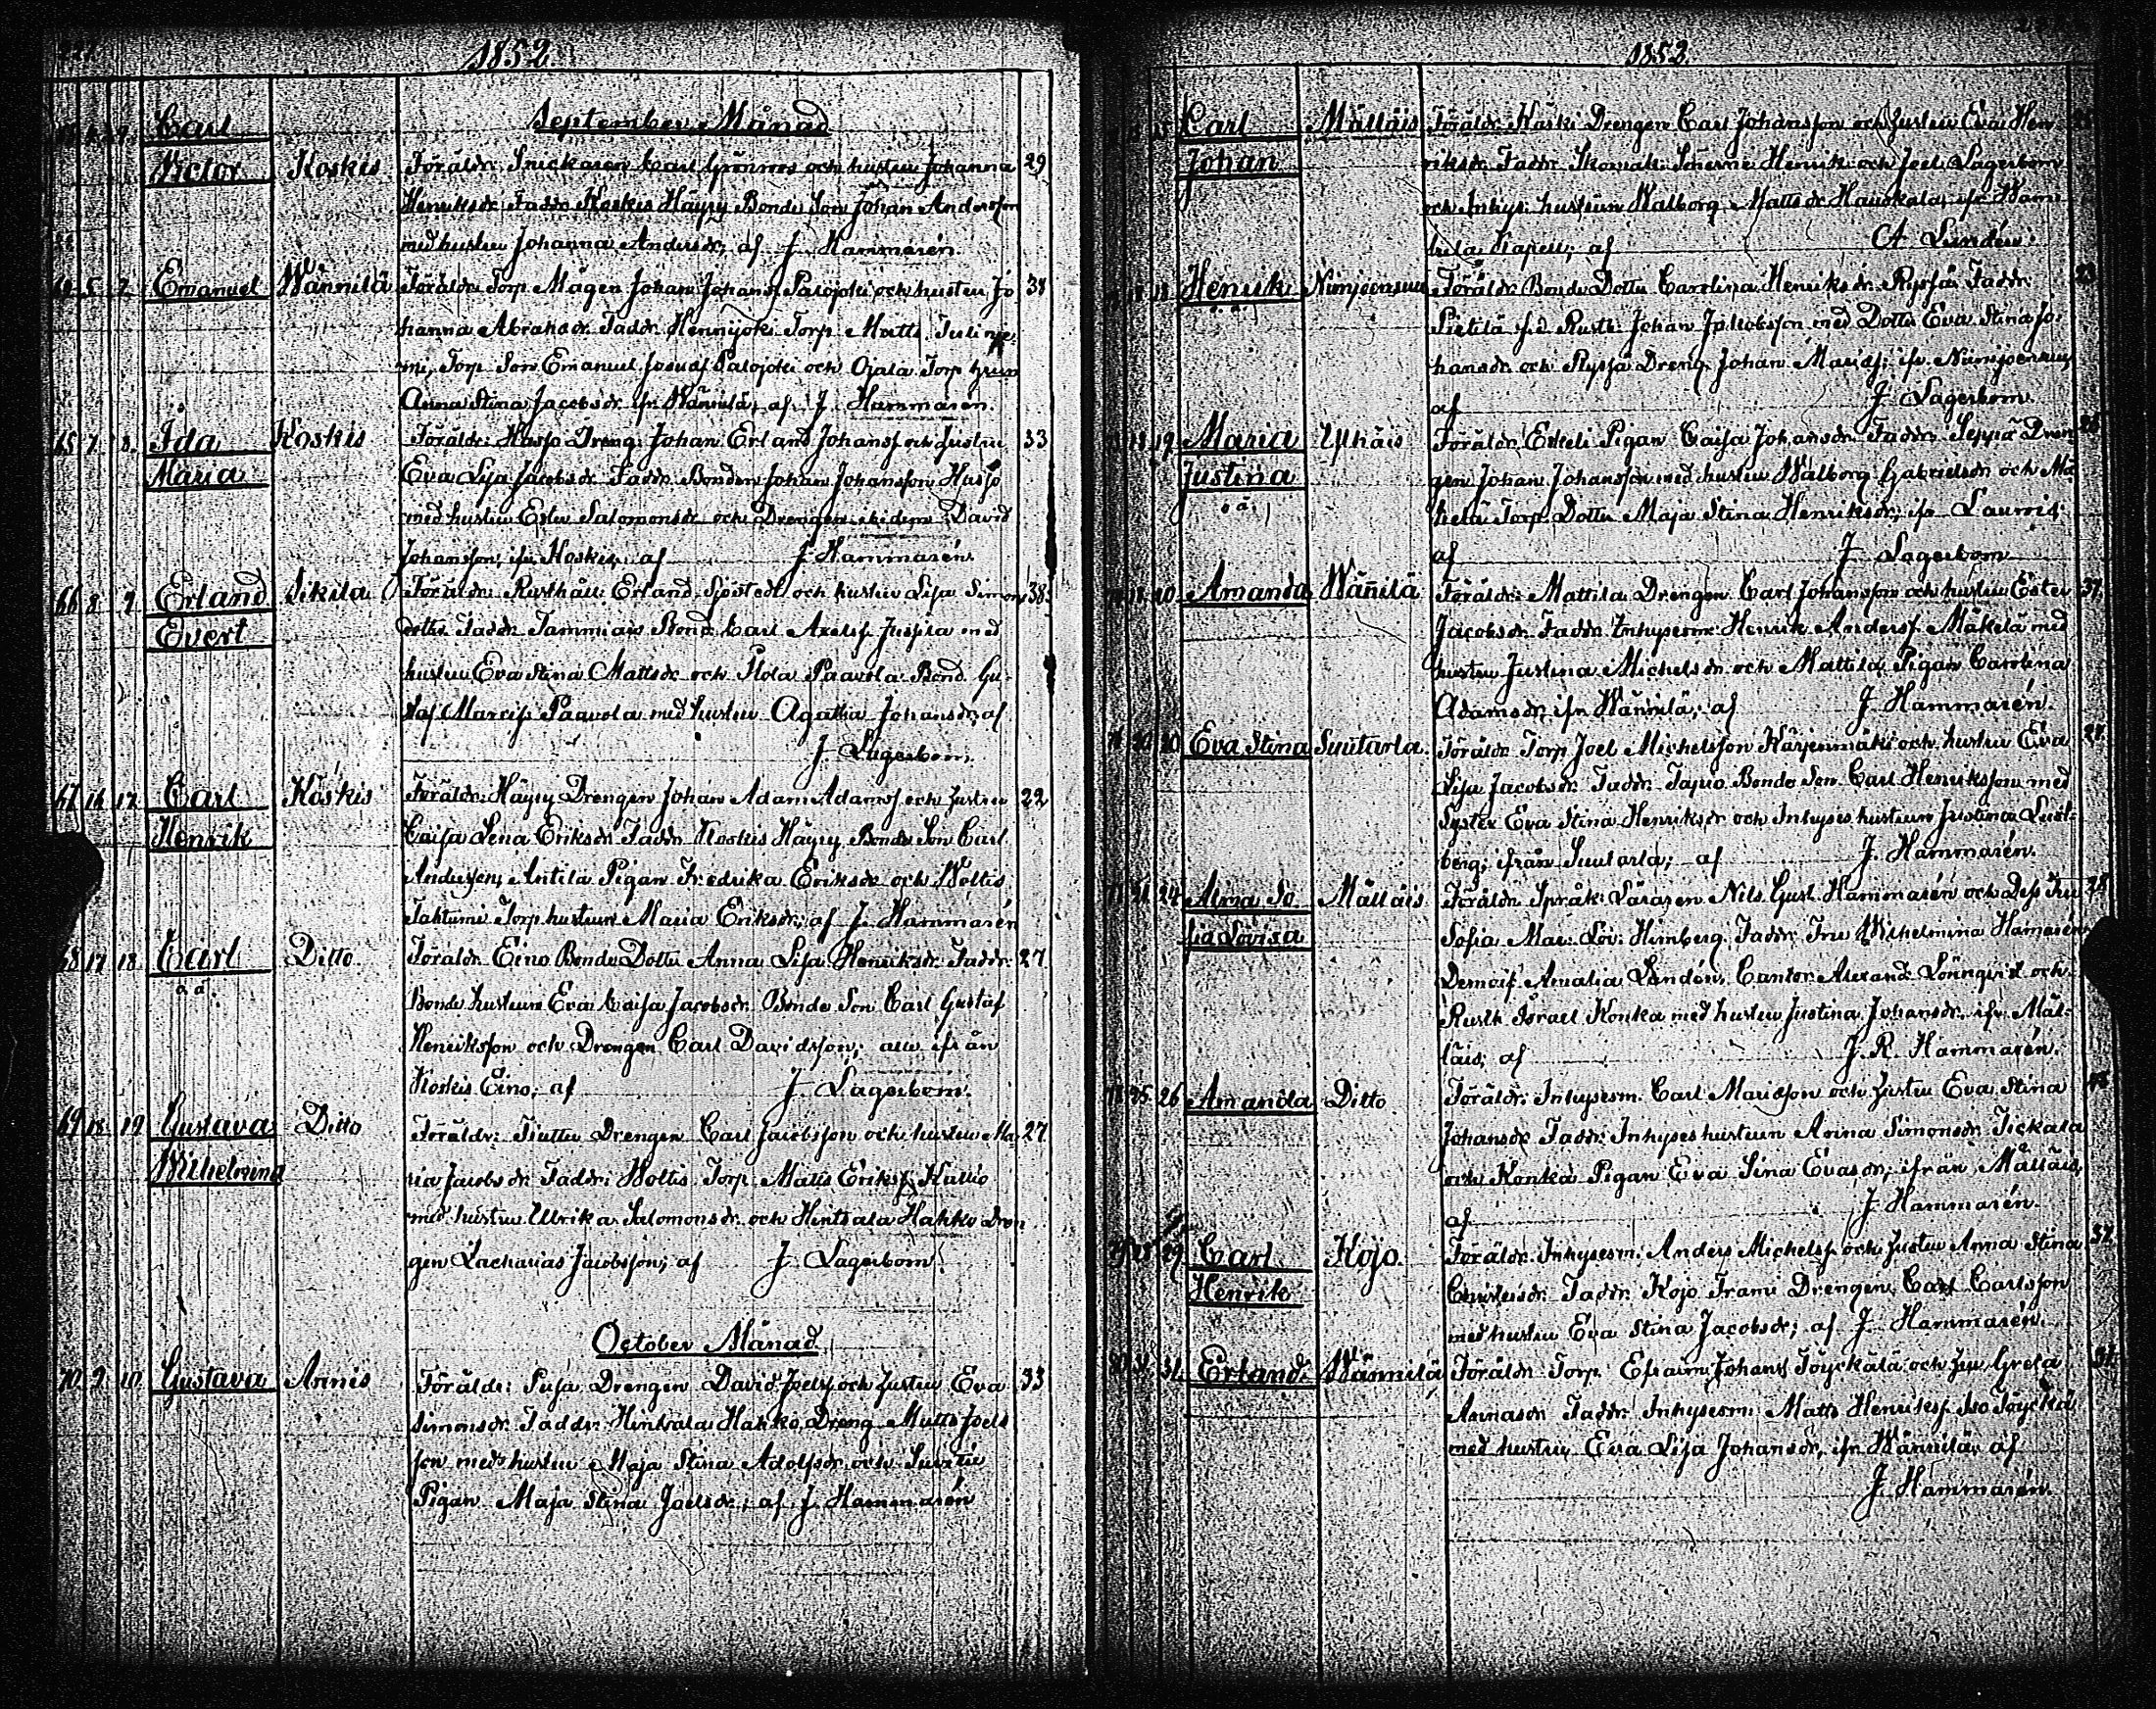 1852
September Månad
Carl
Victor Koskis Föräldr: Snickaren Carl Grönroos och hustru Johanna 29
Henriksdr Faddr Koskis Häyry Bonde Son Johan Andersson
med hustru Johanna Andersdr; af J. Hammarén.
5 7 Emanuel Wännilä Föräldr: Torp. Mågen Johan Johanss. Palojoki och hustru Jo 38
hanna Abrahsdr. Faddr. Hennijoki Torp. Matts
mi, Torp. Son Emanuel Josefss. Palojoki och Ojala Torp.
Anna Stina Jacobsdr ifr. Wännilä, af J. Hammarén.
65 7 8 Ida Koskis Föräldr: Hasso Dreng. Johan Erland Johanss. och hustru 33
Maria Eva Lisa Jacobsdr. Faddr. Bonden Johan Johansson Hasjo
med hustru Ester Salomonsdr och Drengen ibidem David
Johansson, ifr. Koskis, af J. Hammarén.
66 8 9 Erland Sikilä Föräldr: Rusthåll. Erland Sjöstedt och hustru Lisa Simons 38
Evert dotter Faddr. Tammiais Bond. Carl Axelss. Jussila med
hustru Eva Stina Mattsdr och Flola Paavola Bond. Gu-
staf Marciss. Paavola med hustru Agatha Johansdr; af
J. Lagerbom.
67 16 17 Carl Koskis Föräldr: Häyry Drengen Johan Adam Adamss. och hustru 22
Henrik Caisa Lena Eriksdr. Faddr. Koskis Häyry Bonde Son Carl
Andersson, Antila Pigan Fredrika Eriksdr och Woltis
Tahtumi Torp. hustrun Maria Eriksdr; af J. Hammarén
68 17 18 Carl Ditto Föräldr. Eino Bonde Dottr Anna Lisa Henriksdr. Faddr: 27
o ä. Bonde hustrun Eva Caisa Jacobsdr. Bonde Son Carl Gustaf
Henriksson och Drengen Carl Davidsson; alle ifrån
Koskis Eino; af J. Lagerbom.
69 18 19 Gustava Ditto Föräldr: Drengen Carl Jacobsson och hustru Ma- 27
Wilhelmina ria Jacobsdr. Faddr: Woltis Torp. Matts Erikss. Kallio
med hustru Ulrika Salomonsdr. och Hintsala Hahko Dren
gen Zacharias Jacobsson; af J. Lagerbom.
October Månad
70 9 10 Gustava Annis Föräldr: Pusa Drengen David Joelss. och hustru Eva 33
Simonsdr. Faddr. Hintsala Hahko Dreng Matts Joels
son med hustru Maja Stina Adolfsdr. och
Pigan Maja Stina Joelsdr.; af J. Hammarén
1852
15 Carl Mällais Föräldr. Kaski Drengen Carl Johansson och hustru Eva Hen
Johan riksdr. Faddr. Skomak. Sönerne Henrik och Joel Lagerbom
och Inhys. hustrun Walborg Mattsdr. ifr.
Kapell; af A. Lundén.
18 Henrik Niinijoensuu Föräldr. Bonde Dottr Carolina Henriksdr. Ryssä Faddr. 23
o ä. Pietilä Rusth. Johan Jakobsson med Dottr Eva Stina Jo-
hansdr. och Ryssä Dreng. Johan ifr. Niinijoensuu,
af J. Lagerbom.
18 19 Maria Ylhäis Föräldr. Erkeli Pigan Caisa Johansdr. Faddr. Seppä Dren 28
Justina gen Johan Johansson med hustru Walborg Gabrielsdr. och Mä
o ä. kelä Torp. Dottr Maja Stina Henriksdr; ifr. Lauvois;
af J. Lagerbom
18 20 Amanda Wännilä Föräldr: Mattila Drengen Carl Johansson och hustru Ester 37
Jacobsdr. Faddr. Inhysesm. Henrik Anderss. Mäkelä med
hustru Justina Michelsdr. och Mattila Pigan Carolina
Adamsdr. ifr. Wännilä; af J. Hammarén.
20 20 Eva Stina Suutarla. Föräldr. Torp. Joel Michelsson Härjenmäki och hustru Eva 28
Lisa Jacobsdr. Faddr. Tapio Bonde Son Carl Henriksson med
Syster Eva Stina Henriksdr. och Inhyses hustrun Justina
berg; ifrån Suutarla; af J. Hammarén.
21 24 Alma So Mällais Föräldr. Språk: Läraren Nils Gust. Hammarén och Dess Fru 28
fia Lovisa Sofia Mar. Lov. Himberg. Faddr. Fru Wilhelmina Hamarén,
Demois. Amalia Lindén, Cantor Alexand. Lönnqvist och
Rusth. Israel Konka med hustru Justina Johansdr. ifr. Mäl-
läis; af J. R. Hammarén.
25 26 Amanda Ditto Föräldr: Inhysesm. Carl Mariasson och hustru Eva Stina
Johansdr. Faddr: Inhyses hustrun Anna Simonsdr.
och Konka Pigan Eva Lina Evasdr; ifrån Mällais,
af J. Hammarén.
28 29 Carl Kojo. Föräldr. Inhysesm. Anders Michelss. och hustru Anna Stina 37
Henrik Faddr. Kojo Frami Drengen Carl Carlsson
med hustru Eva Stina Jacobsdr; af J. Hammarén.
31 Erland Wännilä Föräldr. Torp. Efraim Johanss. Töyckälä och hu. Greta
Annasdr. Faddr. Inhysesm. Matts Henrikss. Iso Töyckä
med hustru Eva Lisa Johansdr, ifr. Wännilä, af
J. Hammarén.